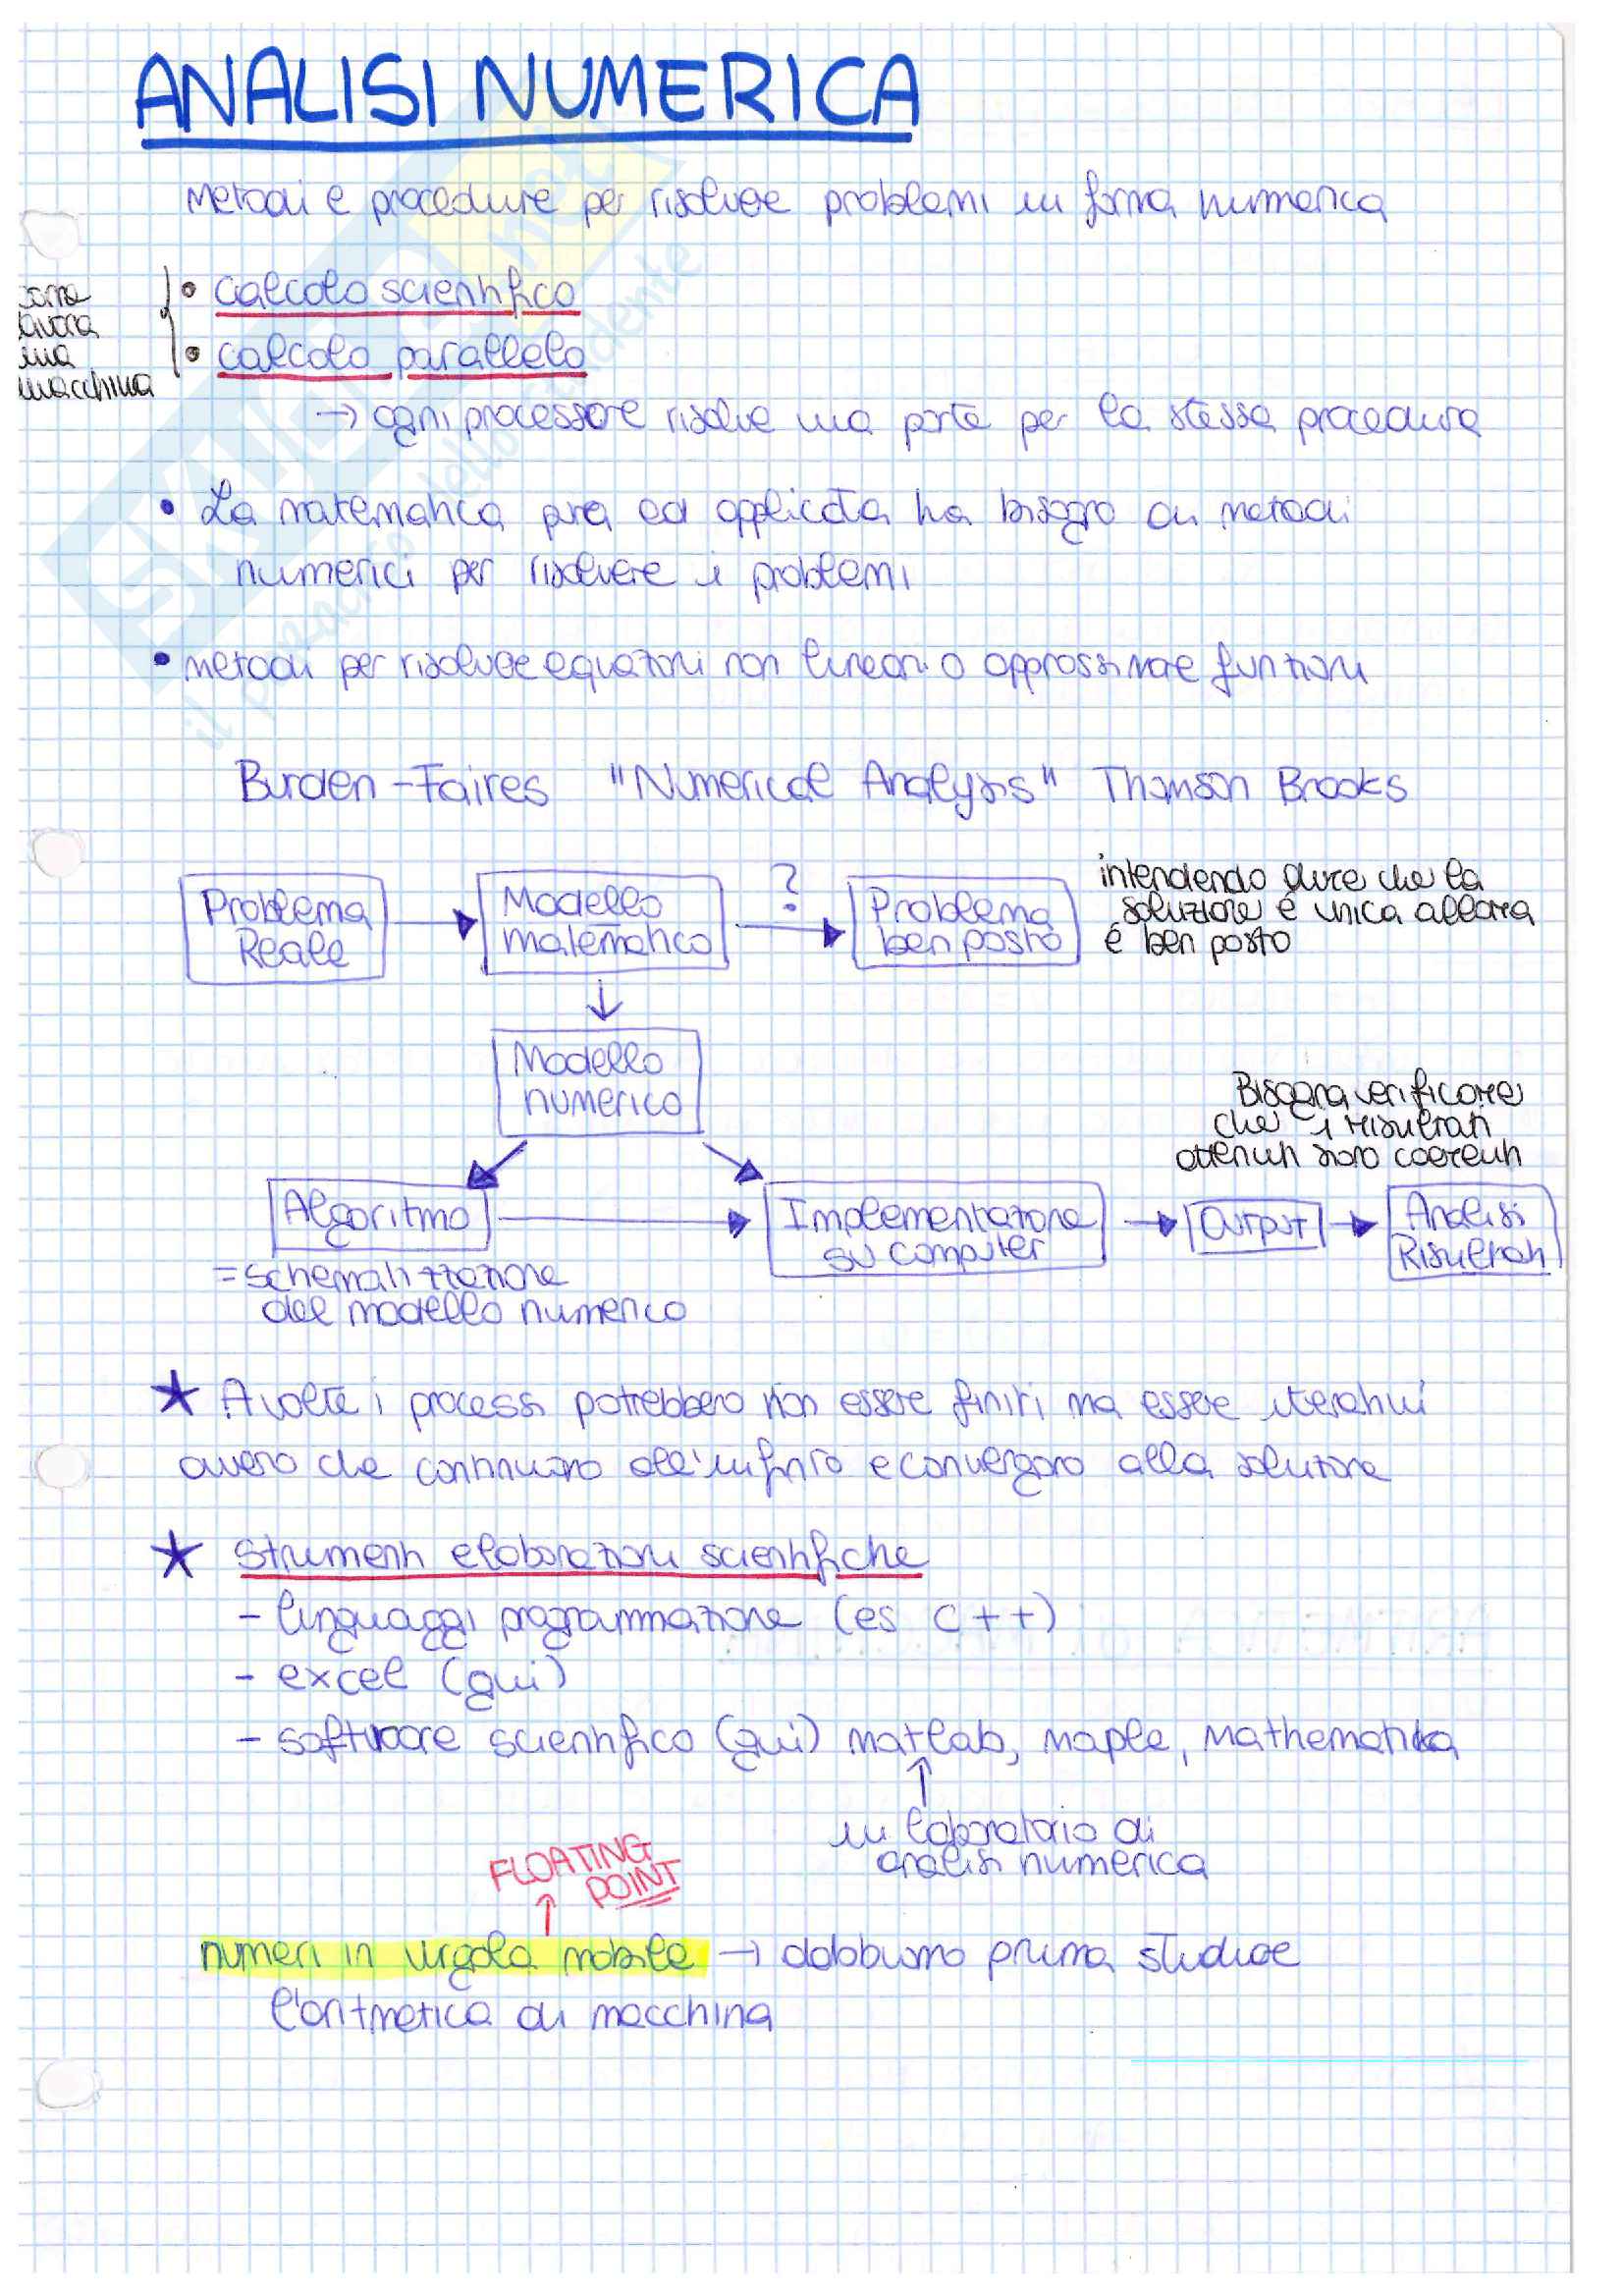 ANALISI NUMERICA
Metodi e procedure per risolvere problemi in forma numerica
come
lavora
una
macchina
• calcolo scientifico
• calcolo parallelo
→ ogni processore risolve una parte per la stessa procedura
• La matematica pura ed applicata ha bisogno di metodi
numerici per risolvere i problemi
• metodi per risolvere equazioni non lineari o approssimare funzioni
Burden-Faires "Numerical Analysis" Thomson Brooks
Problema
Reale
Modello
matematico
?
Problema
ben posto
intendendo dire che la
soluzione è unica allora
è ben posto
Modello
numerico
Bisogna verificare
che i risultati
ottenuti siano coerenti
Algoritmo
Implementazione
su computer
OUTPUT
Analisi
Risultati
= schematizzazione
del modello numerico
★ A volte i processi potrebbero non essere finiti ma essere iterativi
ovvero che continuano all'infinito e convergono alla soluzione
★ Strumenti elaborazioni scientifiche
- linguaggi programmazione (es C++)
- excel (gui)
- software scientifico (gui) matlab, maple, Mathematica
↑
in laboratorio di
analisi numerica
FLOATING
POINT
↑
numeri in virgola mobile → dobbiamo prima studiare
l'aritmetica di macchina
SKUOLA.net
il paradiso dello studente